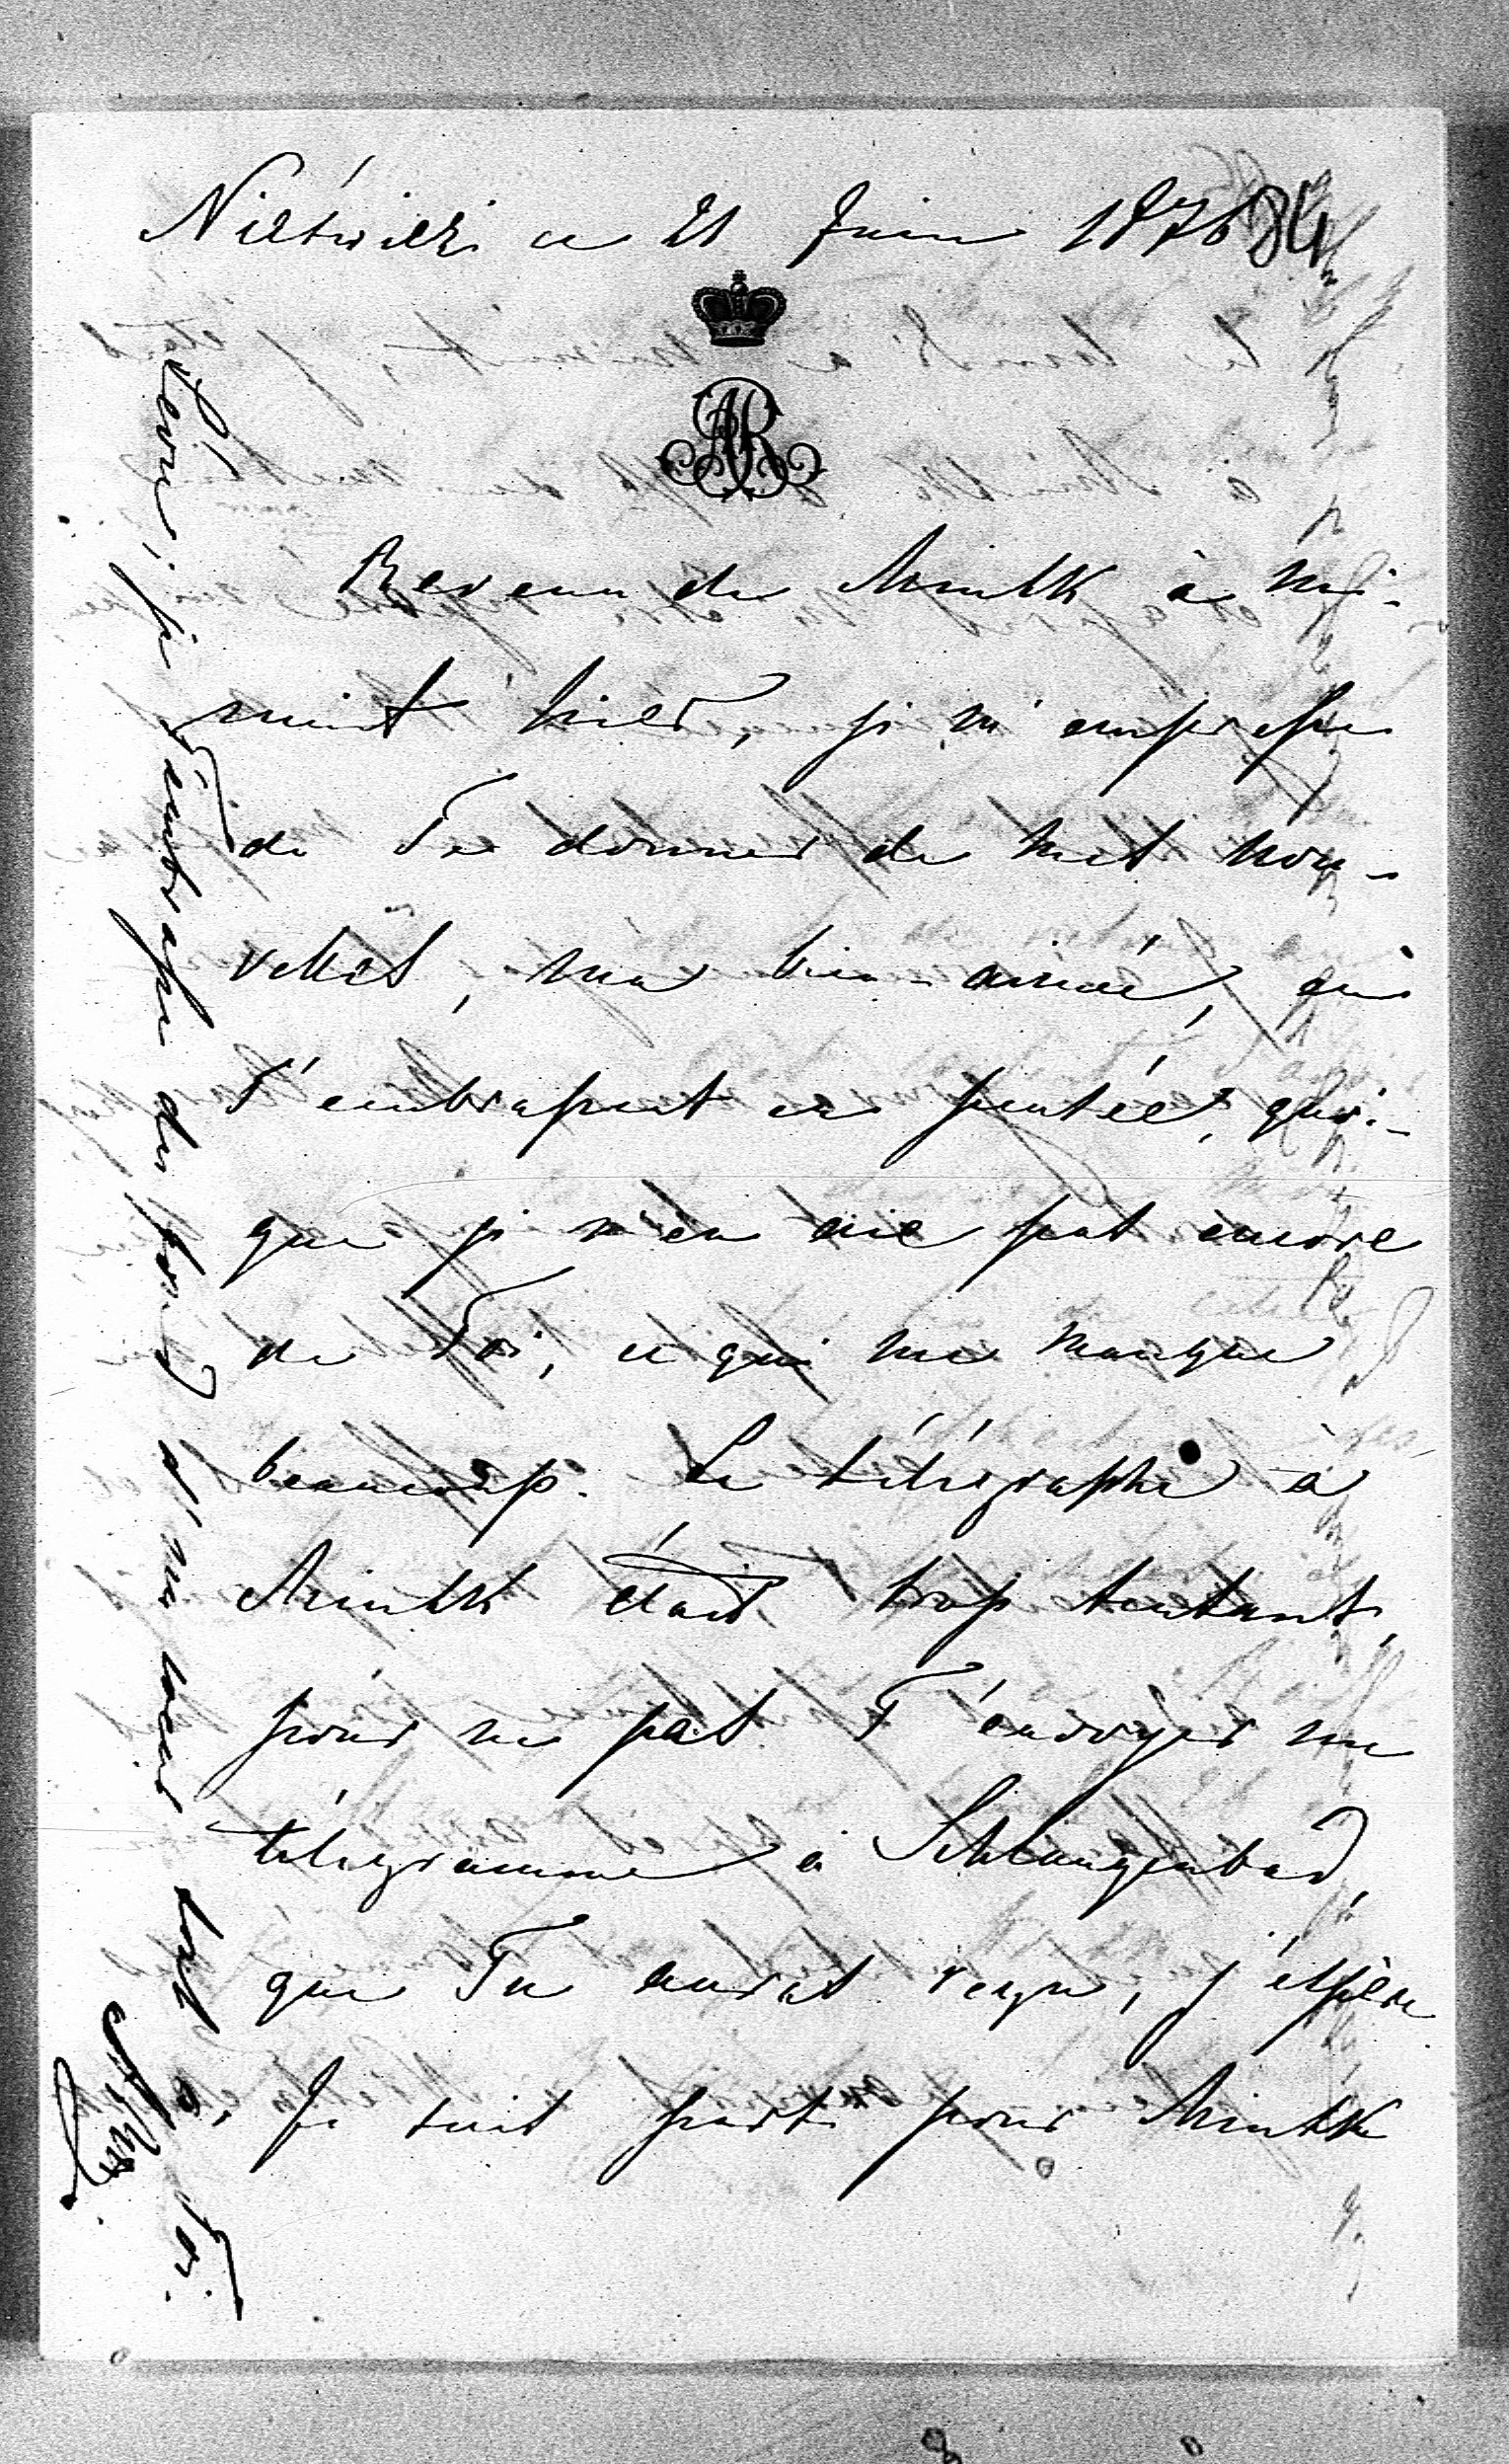 Nieświéz ce 21 Juin 1876
84
AR
Revenu de Minsk à mi-
nuit hier, je m'empresse
de Te donner de mes nou-
velles, ma bien-aimée, en
T'embrassant en pensée, quoi-
que je n'en aie pas encore
de Toi, ce qui me manque
beaucoup. Le télégraphe à
Minsk était trop tentant,
pour ne pas T'envoyer un
télégramme à Schlangenbad,
que Tu auras reçu, j'espère.
Je suis parti pour Minsk
je T'embrasse du fond d. mon coeur
tout à Toi.